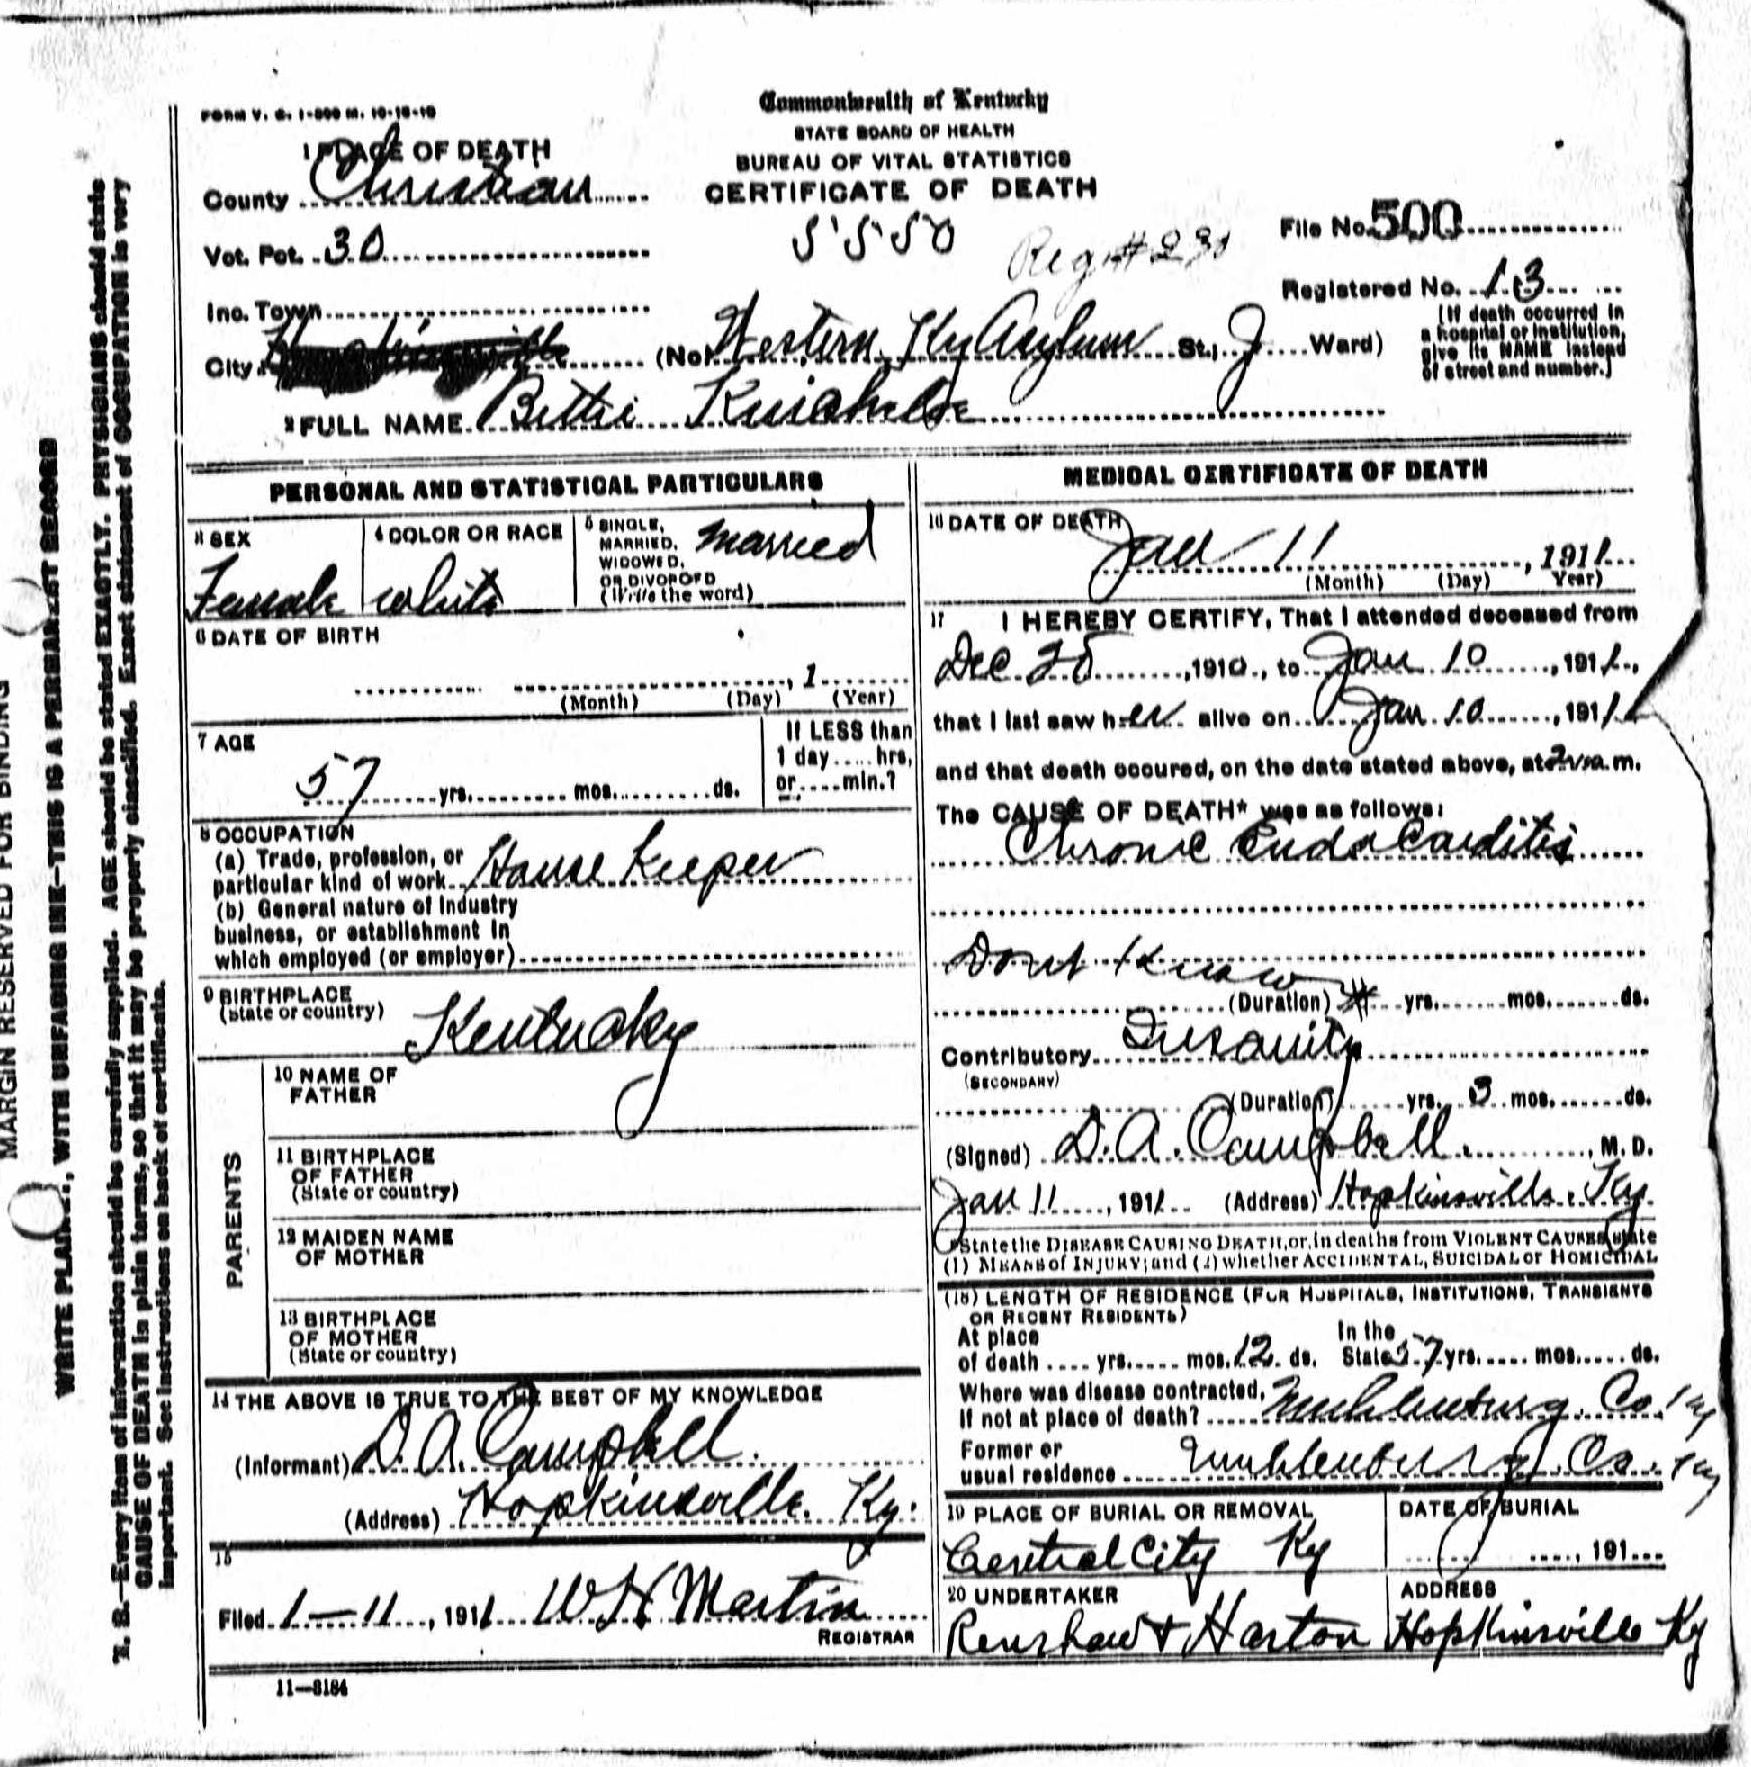 FORM V. S. 1-500 M. 10-18-10
Commonwealth of Kentucky
STATE BOARD OF HEALTH
BUREAU OF VITAL STATISTICS
CERTIFICATE OF DEATH
1 PLACE OF DEATH
County Christian
Vot. Pct. 30
5550
Reg #
File No. 500
Registered No. 13
Inc. Town
City
(No. Western Ky Asylum St.; Ward)
(If death occurred in
a hospital or institution,
give its NAME instead
of street and number.)
2 FULL NAME
PERSONAL AND STATISTICAL PARTICULARS
3 SEX
Female
4 COLOR OR RACE
White
5 SINGLE,
MARRIED,
WIDOWED,
OR DIVORCED
(Write the word)
Married
6 DATE OF BIRTH
, 1
(Month) (Day) (Year)
7 AGE
57 yrs. mos. ds.
If LESS than
1 day hrs,
or min.?
8 OCCUPATION
(a) Trade, profession, or
particular kind of work House Keeper
(b) General nature of Industry
business, or establishment in
which employed (or employer)
9 BIRTHPLACE
(State or country)
Kentucky
PARENTS
10 NAME OF
FATHER
11 BIRTHPLACE
OF FATHER
(State or country)
12 MAIDEN NAME
OF MOTHER
13 BIRTHPLACE
OF MOTHER
(State or country)
14 THE ABOVE IS TRUE TO THE BEST OF MY KNOWLEDGE
(Informant) D. A. Campbell
(Address) Hopkinsville, Ky.
15
Filed 1-11, 1911 W H Martin
REGISTRAR
11-8184
MEDICAL CERTIFICATE OF DEATH
16 DATE OF DEATH
Jan 11, 1911
(Month) (Day) Year)
17 I HEREBY CERTIFY, That I attended deceased from
Dec. 28, 1910, to Jan 10, 1911,
that I last saw her alive on Jan. 10, 1911
and that death occured, on the date stated above, at a.m.
The CAUSE OF DEATH* was as follows:
Chronic Endo Carditis
Dont Know
(Duration) yrs. mos. ds.
Contributory Insanity
(SECONDARY)
(Duration) yrs. 3 mos. ds.
(Signed) D. A. Campbell, M. D.
Jan 11, 1911 (Address) Hopkinsville, Ky.
*State the DISEASE CAUSING DEATH, or, in deaths from VIOLENT CAUSES, state
(1) MEANS of INJURY; and (2) whether ACCIDENTAL, SUICIDAL or HOMICIDAL
(18) LENGTH OF RESIDENCE (FOR HOSPITALS, INSTITUTIONS, TRANSIENTS
OR RECENT RESIDENTS)
At place
of death yrs. mos. 12 ds.
In the
State 57 yrs. mos. ds.
Where was disease contracted,
If not at place of death? Muhlenburg. Co. Ky
Former or
usual residence Muhlenburg. Co. Ky
19 PLACE OF BURIAL OR REMOVAL
Central City Ky
DATE OF BURIAL
, 191
20 UNDERTAKER
Renshaw & Harton
ADDRESS
Hopkinsville Ky
MARGIN RESERVED FOR BINDING
WRITE PLAINLY, WITH UNFADING INK—THIS IS A PERMANENT RECORD
N. B.—Every item of information should be carefully supplied. AGE should be stated EXACTLY. PHYSICIANS should state
CAUSE OF DEATH in plain terms, so that it may be properly classified. Exact statement of OCCUPATION is very
important. See instructions on back of certificate.